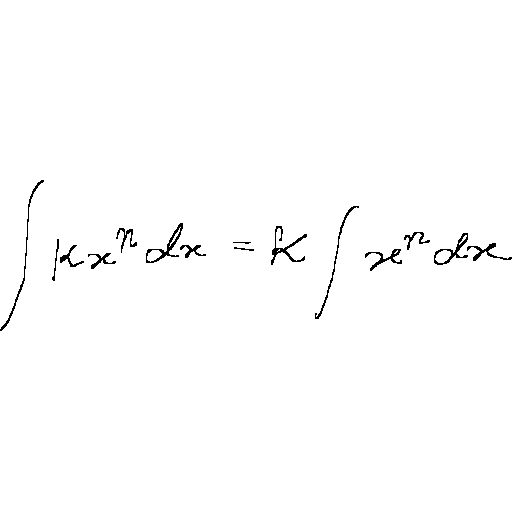 ∫ kxⁿ dx = k ∫ xⁿ dx